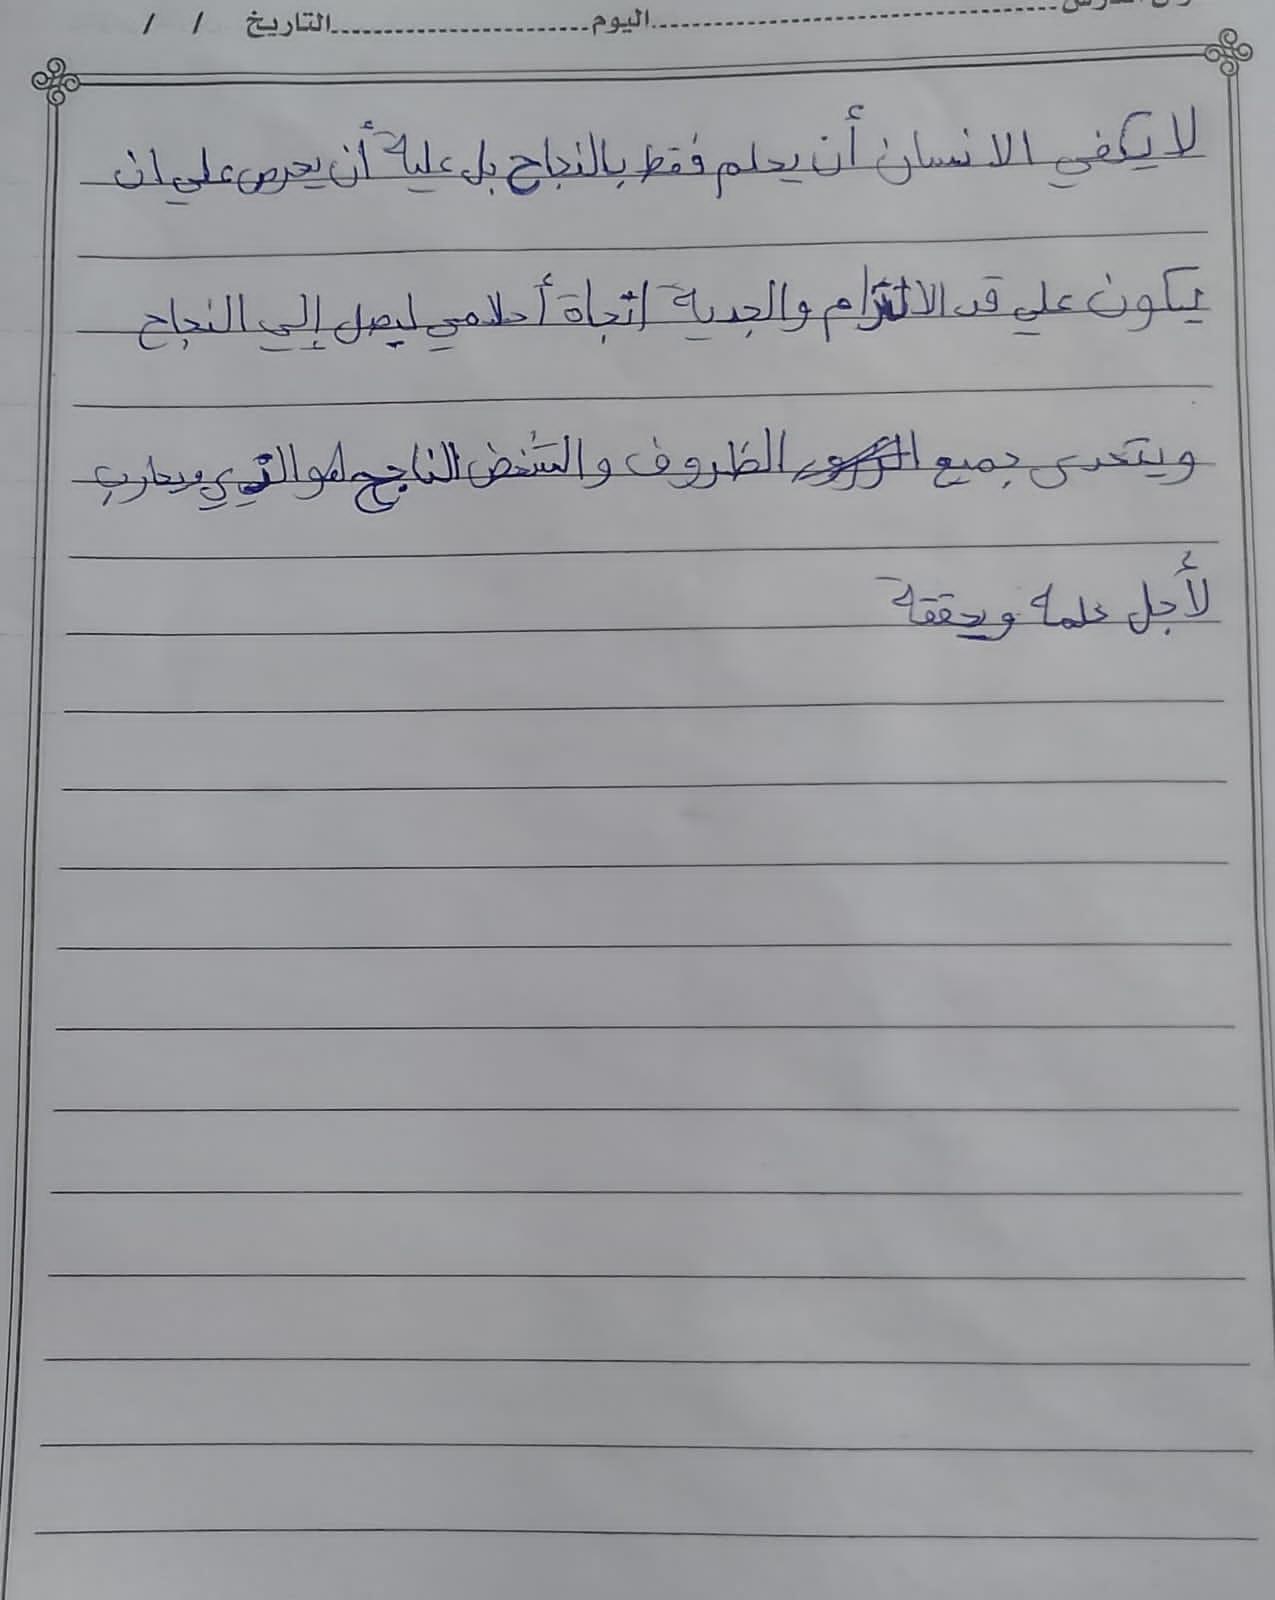 اليوم التاريخ / /
لا يكفي الانسان أن يحلم فقط بالنجاح بل علية أن يحرص علي ان
يكون علي قد الالتزام والجدية إتجاة أحلامي ليصل إلي النجاح
ويتحدى جميع الظروف والشخص الناجح هو الذي ويحارب
لأجل حلمة ويحققة